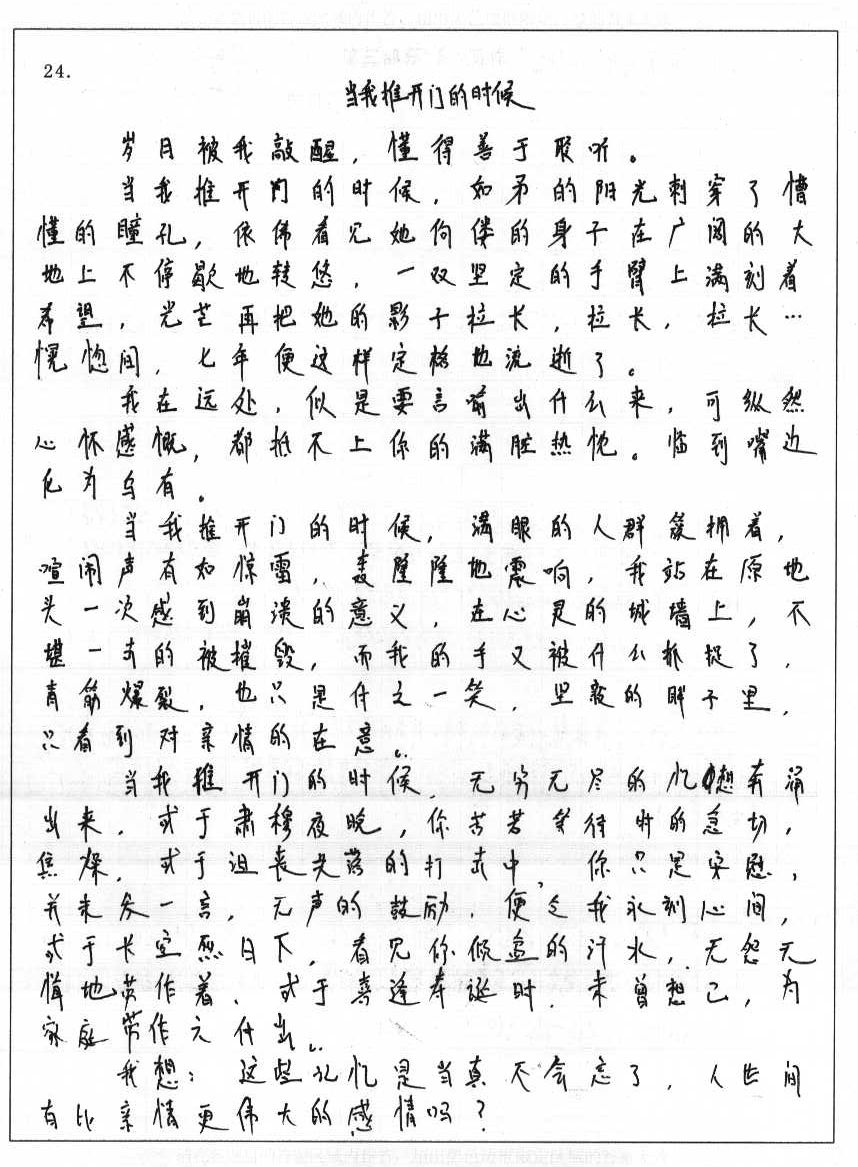 24.
当我推开门的时候
岁月被我敲醒，懂得善于聆听。
当我推开门的时候，如初的阳光刺穿了懵
懂的瞳孔，依稀看见她佝偻的身子在广阔的大
地上不停歇地转悠，一双坚定的手臂上满刻着
希望，光芒再把她的影子拉长，拉长，拉长…
恍惚间，七年便这样定格地流逝了。
我在远处，似是要言喻出什么来，可纵然
心怀感慨，都抵不上你的满腔热忱。临到嘴边
化为乌有。
当我推开门的时候，满眼的人群簇拥着，
喧闹声有如惊雷，轰隆隆地震响，我站在原地
头一次感到崩溃的意义，在心灵的城墙上，不
堪一击的被摧毁，而我的手又被什么抓捉了，
青筋爆裂，也只是付之一笑，坚毅的眸子里，
只看到对亲情的在意。
当我推开门的时候，无穷无尽的忆想奔涌
出来，或于肃穆夜晚，你苦苦等待时的急切，
焦燥，或于沮丧失落的打击中，你只是安慰，
并未发一言，无声的鼓励，便令我永刻心间，
或于长空烈日下，看见你倾盆的汗水，无怨无
悔地劳作着，或于喜逢寿诞时，未曾想己，为
家庭劳作无付出。
我想：这些记忆是当真不会忘了，人世间
有比亲情更伟大的感情吗？